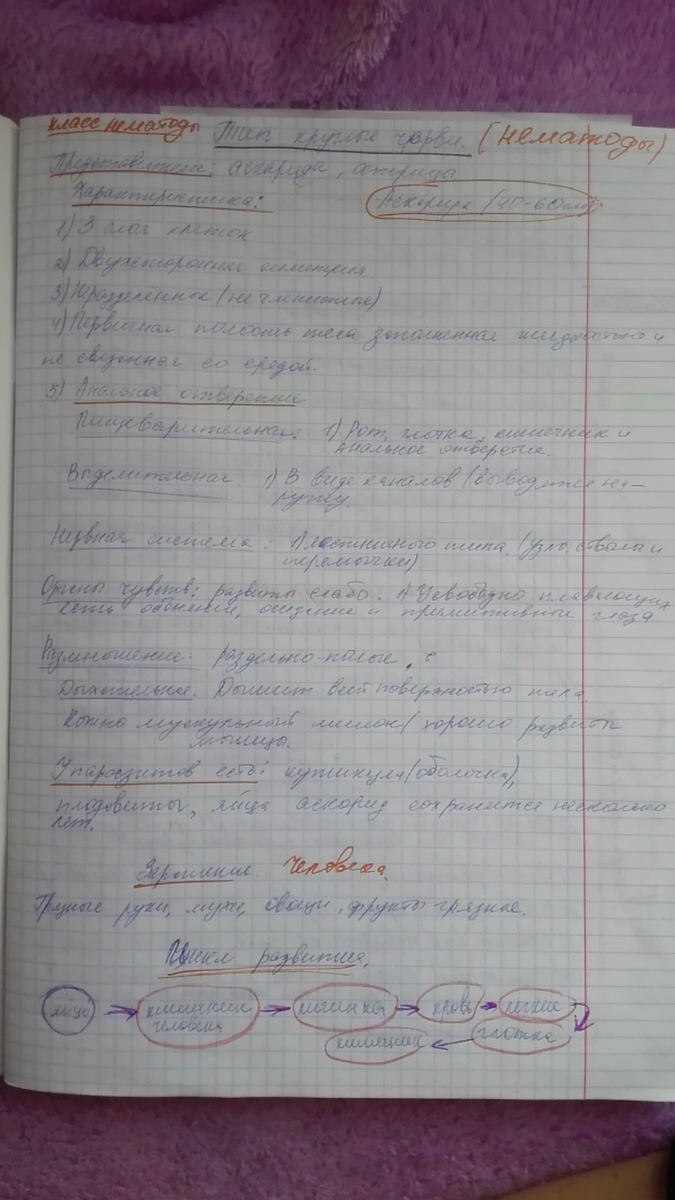 класс нематоды Тип круглые черви. (нематоды)
Представители: аскарида, острицы
Характеристика: Аскарида (40-60см)
1) 3 слоя клеток
2) Двухсторонняя симетрия
3) (не членистые)
4) Первичная полость тела заполненная жидкостью и
не связенная со средой.
5) Анальное отверстие
Пищеварительная: 1) Рот, глотка, кишечник и
Анальное отверстие.
Выделительная: 1) В виде каналов (выводятся на-
ружу.
Нервная система: 1) лестничного типа. (узлы, стволы и
перемычки)
Органы чувств: развиты слабо. А у свободно плавающих
есть обоняния, осязание и примитивные глаза.
Размножение: раздельно-полые,
Дыхательная. Дышит всей поверхностью тела.
Кожно мускульный мешок (хорошо развиты
мышцы.
У паразитов есть: кутикула (оболочка),
плодовиты, яйца аскорид сохранятся несколько
лет.
Заражение. Человека.
Грязные руки, мухи, овощи, фрукты грязные.
Цикл развития.
яйцо → кишечник человека → личинка → кровь → легкие
кишечник ← глотка